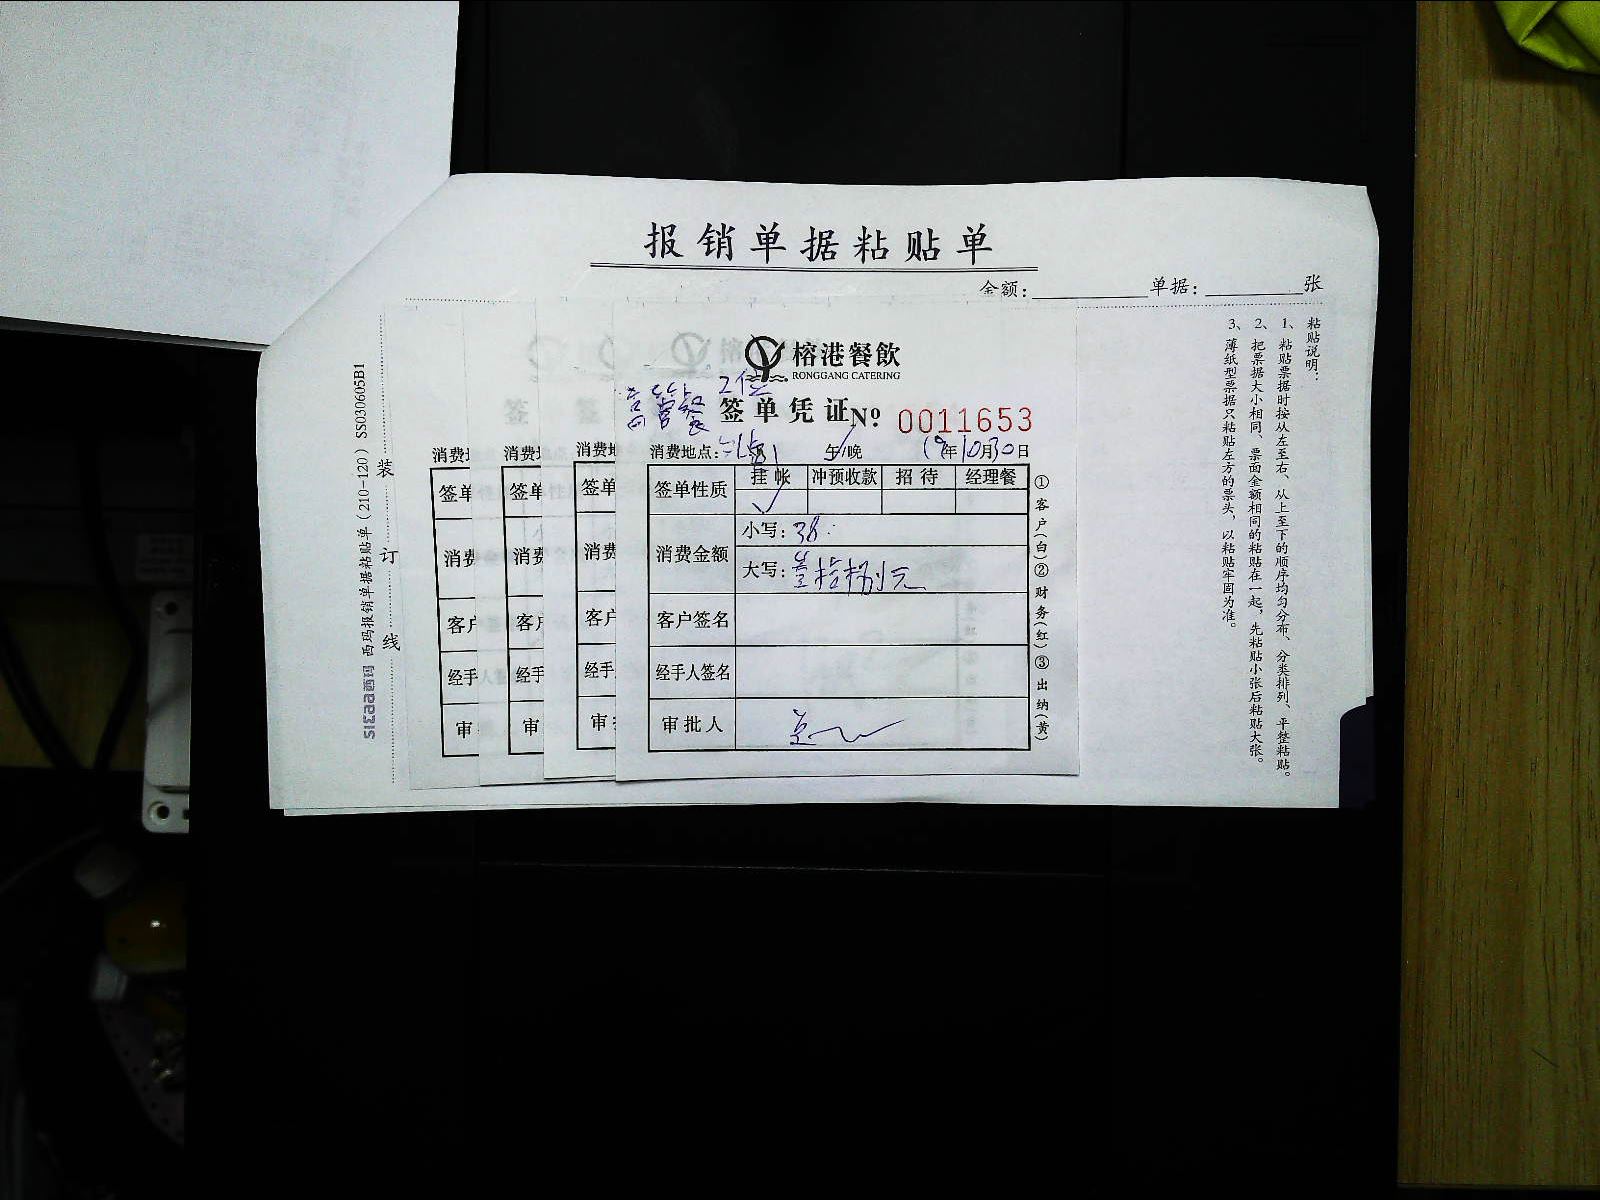 报销单据粘贴单
金额：单据：张
榕港餐飲
RONGGANG CATERING
签单凭证№ 0011653
消费地点： 午/晚 19年10月30日
签单性质 挂帐 冲预收款 招待 经理餐
消费金额 小写：38
大写：叁拾捌元
客户签名
经手人签名
审批人
①客户(白)②财务(红)③出纳(黄)
消费地
签单
消费
客户
经手
审
消费地
签单
消费
客户
经手
审
消费地
签单
消费
客户
经手
审
装订线
西玛报销单据粘贴单（210-120） SS030605B1
西玛
粘贴说明：
1、粘贴票据时按从左至右、从上至下的顺序均匀分布、分类排列、平整粘贴。
2、把票据大小相同、票面金额相同的粘贴在一起，先粘贴小张后粘贴大张。
3、薄纸型票据只粘贴左方的票头，以粘贴牢固为准。